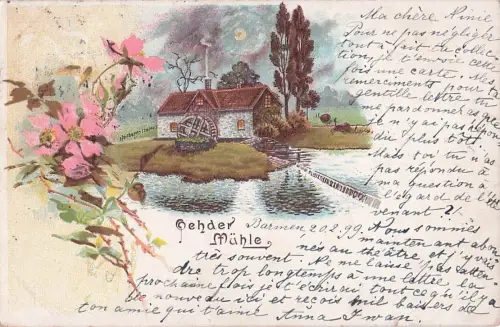 Ma chère Ninie
Pour ne pas négliger
tout à fait ta collec-
tion, je t'envoie cette
fois une carte. Mes
remerciements pour ta
gentille lettre, tu
me pardonneras que
je n'y ai pas répon-
du plus tôt.
Mais toi tu n'as
pas répondu à
ma question à
l'égard de l'
venant?!
Oehder
Mühle
Barmen, 20.2.99. Nous sommes
maintenant abon-
nés au théâtre et j'y vais
très souvent. Ne me laisse pas atten-
dre trop longtemps à une lettre, la
prochaine fois je t'écrirai tout ce qu'il y a
de nouveau ici et reçois mil baisers de
ton amie qui t'aime Anna